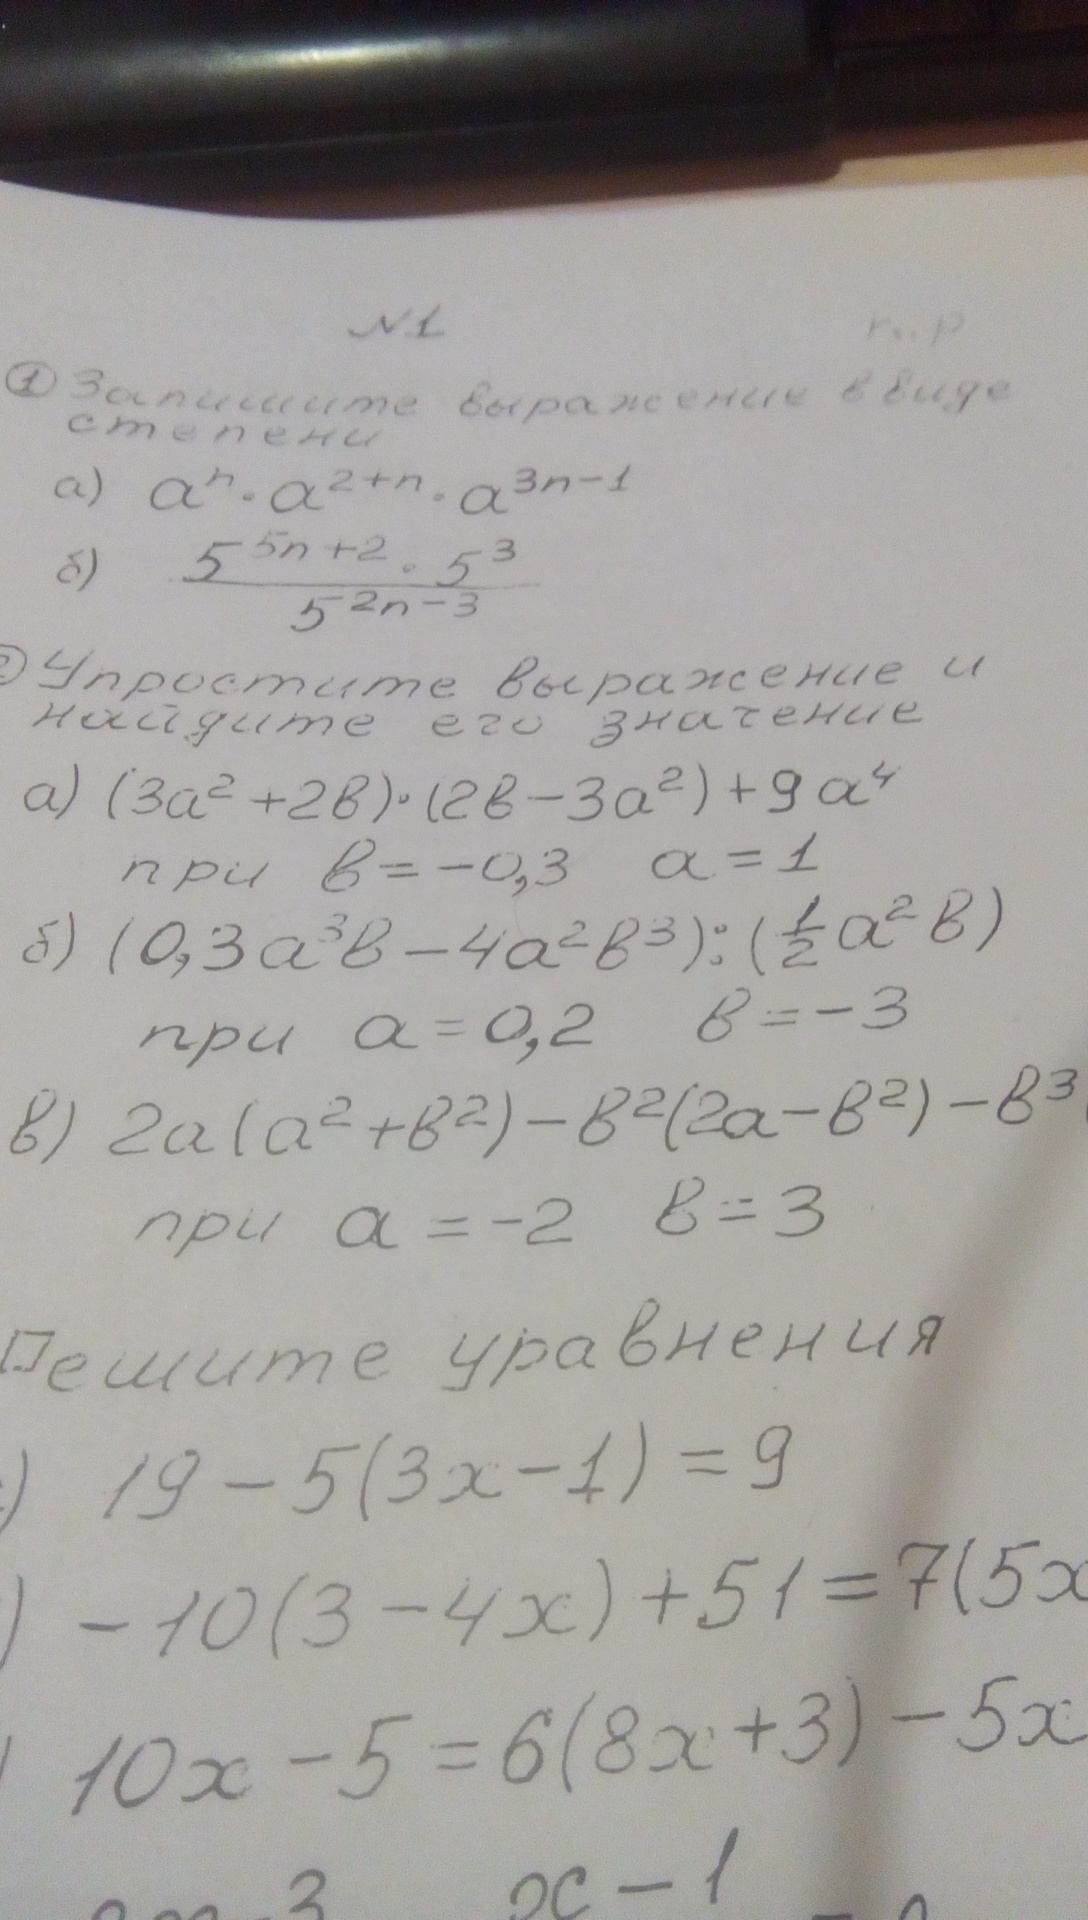 №1
① Запишите выражение в виде
степени
а) aⁿ · a²⁺ⁿ · a³ⁿ⁻¹
б) 5⁵ⁿ⁺² · 5³
5²ⁿ⁻³
Упростите выражение и
найдите его значение
а) (3a² + 2в) · (2в − 3a²) + 9a⁴
при в = −0,3 a = 1
б) (0,3a³в − 4a²в³) : (½a²в)
при a = 0,2 в = −3
в) 2a(a² + в²) − в²(2a − в²) − в³
при a = −2 в = 3
Решите уравнения
) 19 − 5(3x − 1) = 9
) −10(3 − 4x) + 51 = 7(5x
) 10x − 5 = 6(8x + 3) − 5x
3 x − 1